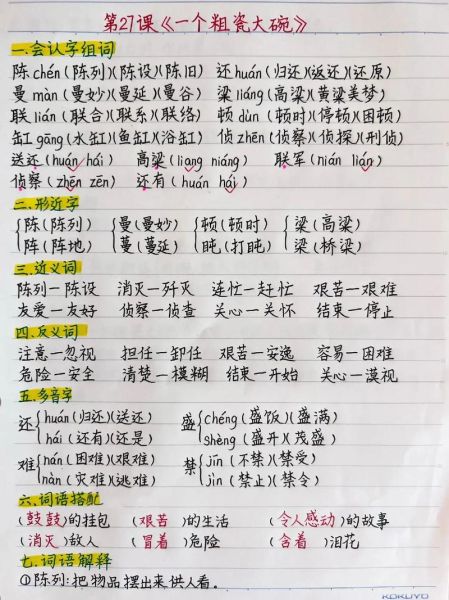 第27课《一个粗瓷大碗》
一.会认字组词
陈 chén(陈列)(陈设)(陈旧) 还 huán(归还)(返还)(还原)
曼 màn(曼妙)(曼延)(曼谷) 梁 liáng(高梁)(黄梁美梦)
联 lián(联合)(联系)(联络) 顿 dùn(顿时)(停顿)(困顿)
缸 gāng(水缸)(鱼缸)(浴缸) 侦 zhēn(侦察)(侦探)(刑侦)
送还(huán hái) 高梁(liang niáng) 联军(nián lián)
侦察(zhēn zēn) 还有(huán hái)
二.形近字
陈(陈列) 曼(曼妙) 顿(顿时) 梁(高梁)
阵(阵地) 蔓(蔓延) 盹(打盹) 梁(桥梁)
三.近义词
陈列—陈设 消灭—歼灭 连忙—赶忙 艰苦—艰难
友爱—友好 侦察—侦查 关心—关怀 结束—停止
四.反义词
注意—忽视 担任—卸任 艰苦—安逸 容易—困难
危险—安全 清楚—模糊 结束—开始 关心—漠视
五.多音字
还 huán(归还)(送还) 盛 chéng(盛饭)(盛满)
hái(还有)(还是) shèng(盛开)(茂盛)
难 nán(困难)(艰难) 禁 jīn(不禁)(禁受)
nàn(灾难)(逃难) jìn(禁止)(禁令)
六.词语搭配
(鼓鼓)的挂包 (艰苦)的生活 (令人感动)的故事
(消灭)敌人 (冒着)危险 (含着)泪花
七.词语解释
①陈列:把物品摆出来供人看。
KOKUYO